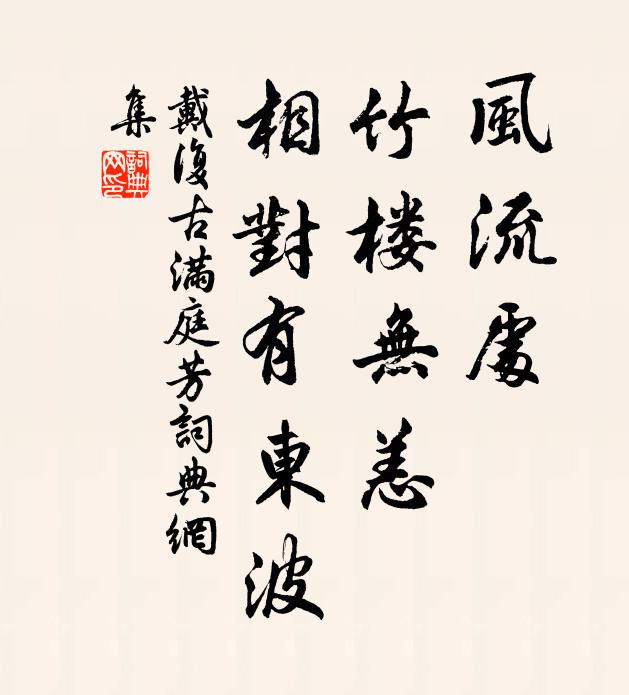 風流處
竹楼無恙
相對有東波
戴復古滿庭芳詞典網
集
詞典
网印